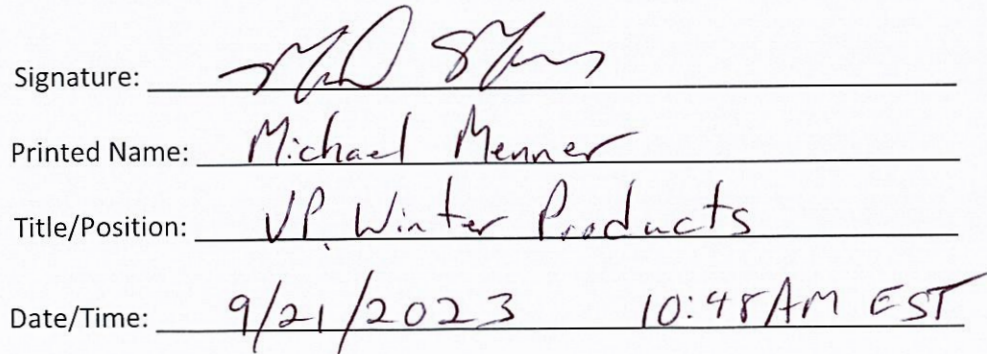 Signature:
Printed Name: Michael Menner
Title/Position: VP. Winter Products
Date/Time: 9/21/2023 10:48 AM EST